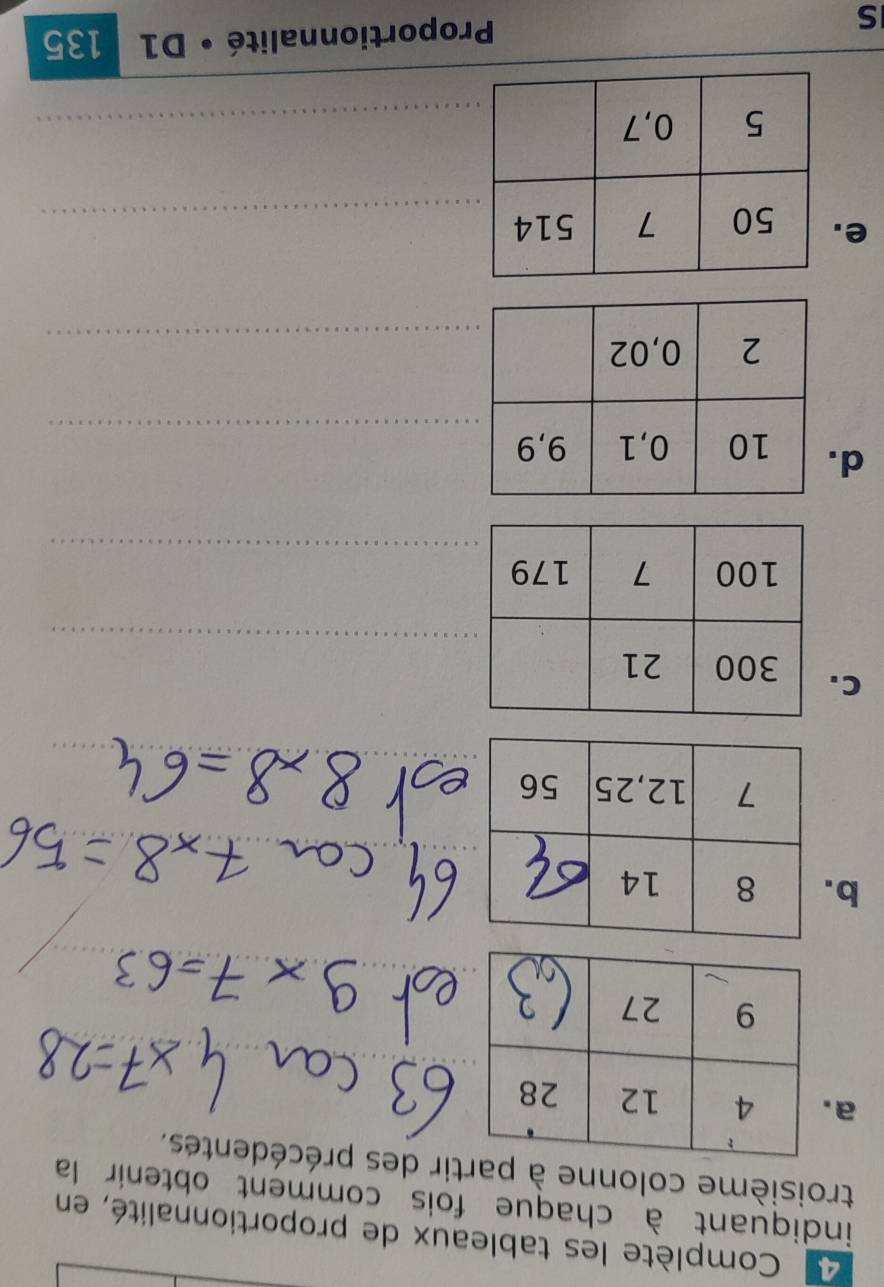 4 Complète les tableaux de proportionnalité, en
indiquant à chaque fois comment obtenir la
troisième colonne à partir des précédentes.
a.
4 12 28
9 27 63
63 car 4 x 7 = 28
et 9 x 7 = 63
b.
8 14 64
7 12,25 56
64 car 7 x 8 = 56
et 8 x 8 = 64
c.
300 21
100 7 179
d.
10 0,1 9,9
2 0,02
e.
50 7 514
5 0,7
Proportionnalité • D1 135